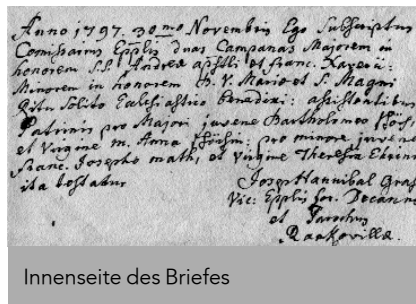 Anno 1797. 30mo Novembris Ego Subscriptus
Comissarius Epplis duas Campanas Majorem in
honorem S.S. Andreæ apostli et Franc. Xaverii:
Minorem in honorem B. V. Mariæ et S. Magni
Ritu Solito Ecclesiastico benedixi: assistentibus
Patrinis pro Majori juvene Bartholomeo
et Virgine M. Anna pro minore juvene
Franc. Josepho math, et Virgine Theresia
ita testatur
Josep Hannibal Graf
Vic: Epplis For. Decanus
et Parochus
Rankovillæ.
Innenseite des Briefes